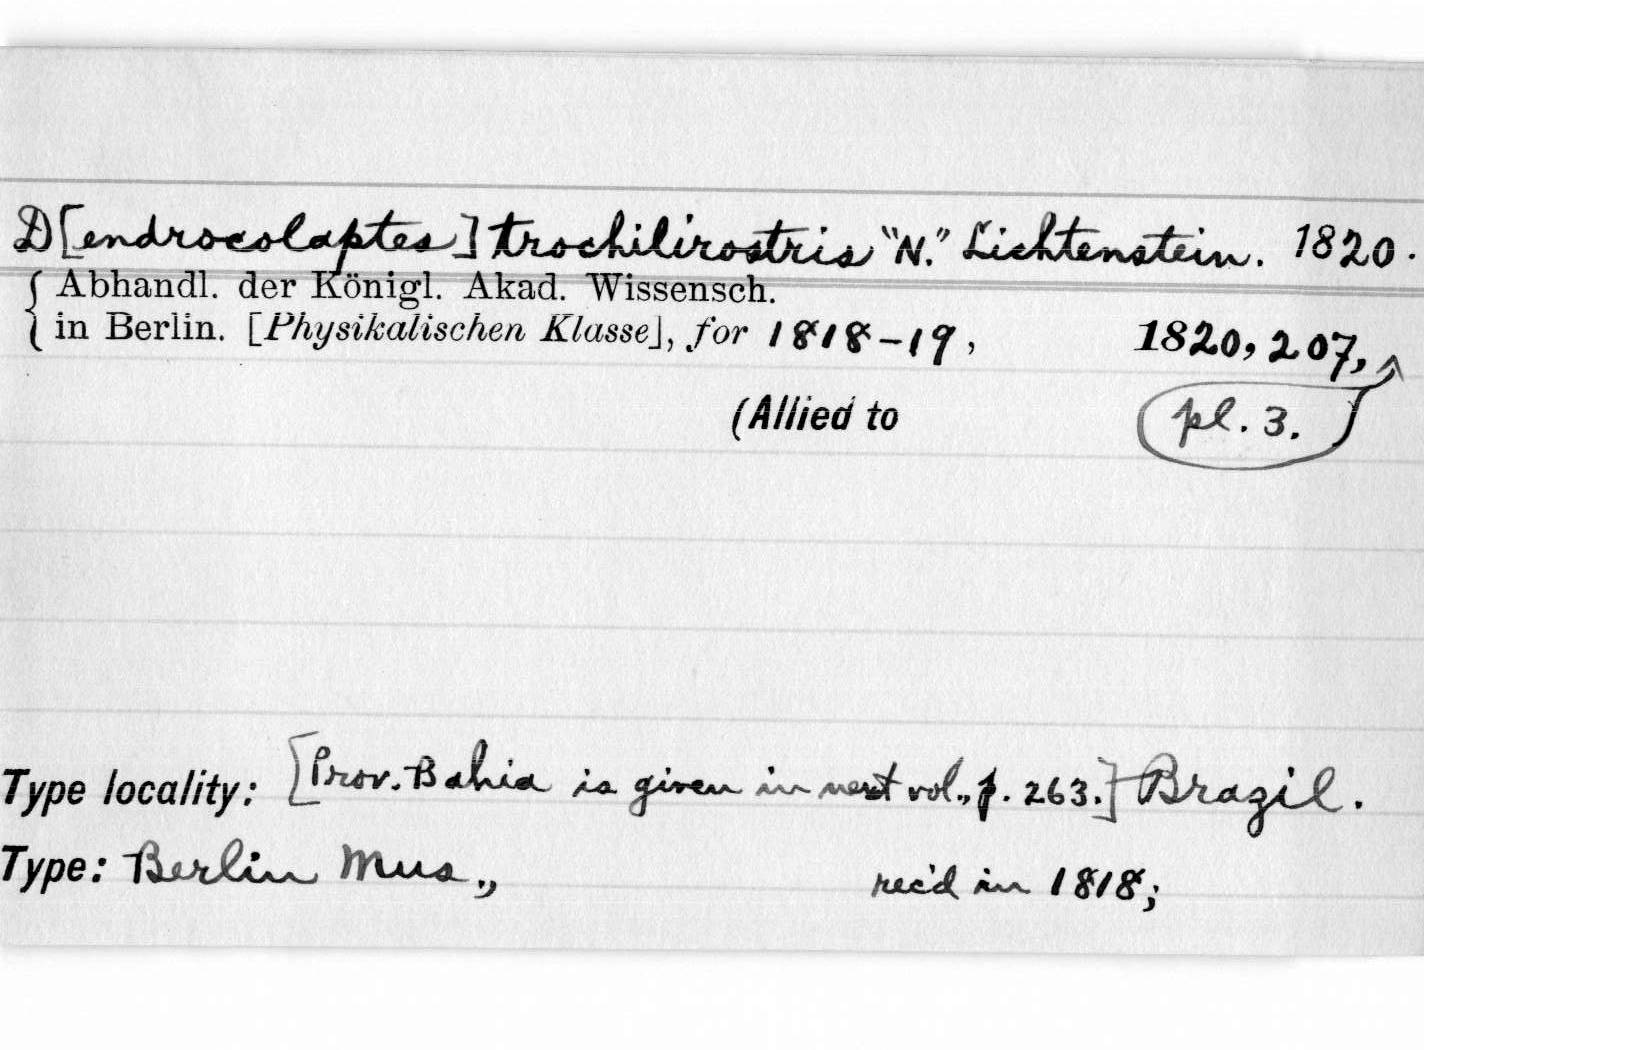 D[endrocolaptes] trochilirostris "N." Lichtenstein. 1820.
Abhandl. der Königl. Akad. Wissensch.
in Berlin. [Physikalischen Klasse], for 1818-19, 1820, 207,
(Allied to pl. 3.
Type locality: [Prov. Bahia is given in next vol., p. 263.] Brazil.
Type: Berlin Mus., rec'd in 1818;